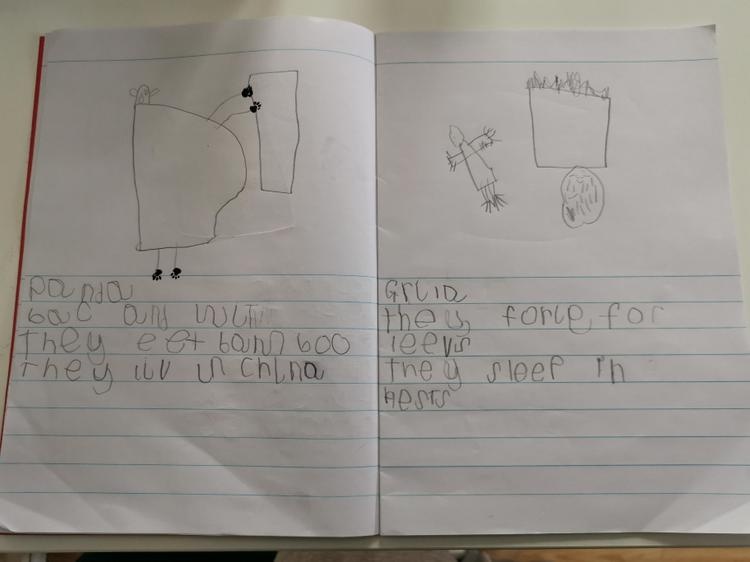 Panda
bac and wuti
they eet bamboo
they liv in China
Grlia
they forle for
leevs
they sleep in
nests